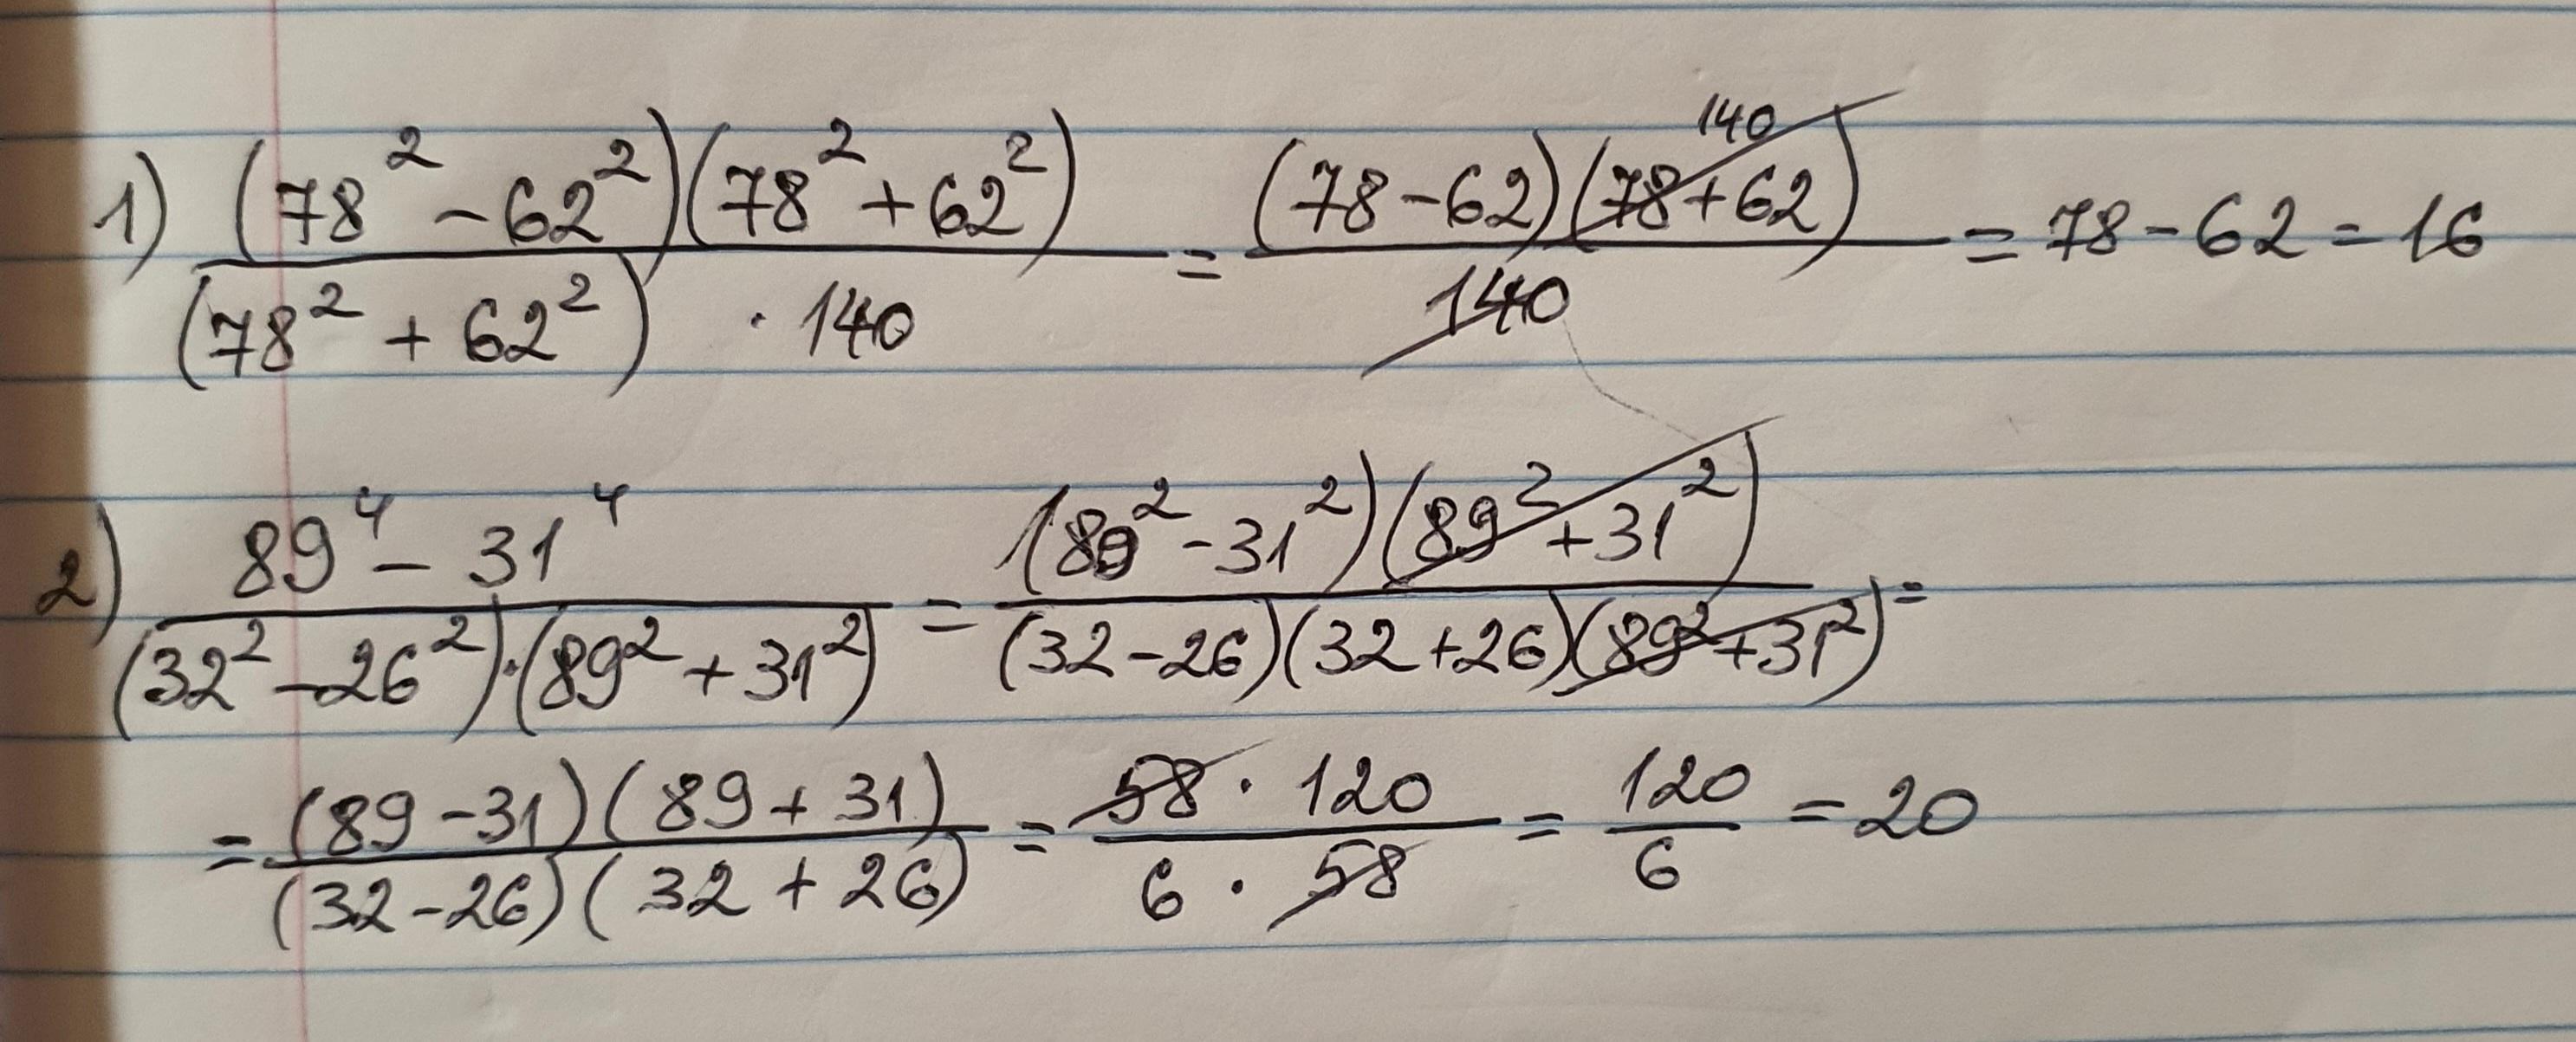 1) \frac{(78^2 - 62^2)(78^2 + 62^2)}{(78^2 + 62^2) \cdot 140} = \frac{(78 - 62)\cancel{(78 + 62)}^{140}}{\cancel{140}} = 78 - 62 = 16
2) \frac{89^4 - 31^4}{(32^2 - 26^2) \cdot (89^2 + 31^2)} = \frac{(89^2 - 31^2)\cancel{(89^2 + 31^2)}}{(32 - 26)(32 + 26)\cancel{(89^2 + 31^2)}} =
= \frac{(89 - 31)(89 + 31)}{(32 - 26)(32 + 26)} = \frac{\cancel{58} \cdot 120}{6 \cdot \cancel{58}} = \frac{120}{6} = 20